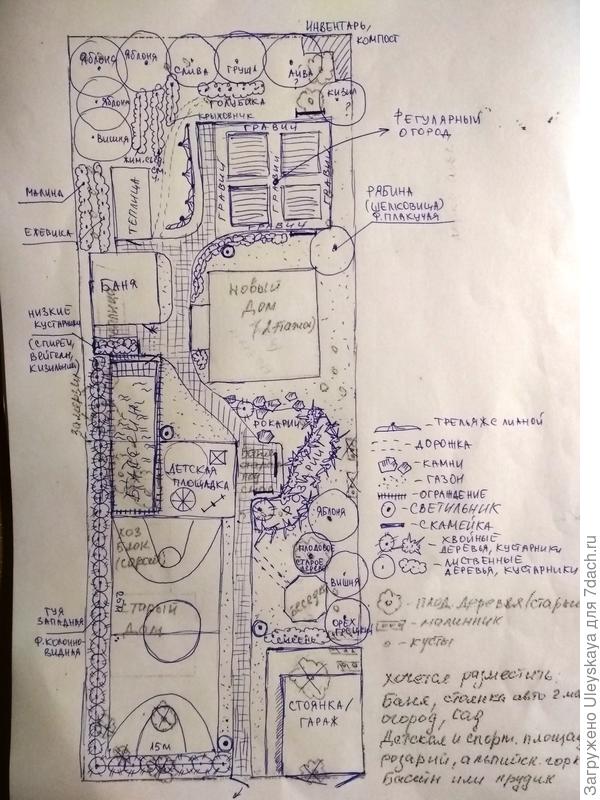 ИНВЕНТАРЬ,
КОМПОСТ
ЯБЛОНЯ
ЯБЛОНЯ
СЛИВА
ГРУША
АЙВА
?
КИЗИЛ
?
ЯБЛОНЯ
ВИШНЯ
ГОЛУБИКА
КРЫЖОВНИК
ЖИМ.
ГРАВИЙ
ГРАВИЙ
ГРАВИЙ
ГРАВИЙ
РЕГУЛЯРНЫЙ
ОГОРОД
МАЛИНА
ЕЖЕВИКА
ТЕПЛИЦА
РЯБИНА
(ШЕЛКОВИЦА)
Ф. ПЛАКУЧАЯ
БАНЯ
НОВЫЙ
ДОМ
(2 этажа)
НИЗКИЕ
КУСТАРНИКИ
(СПИРЕИ,
ВЕЙГЕЛИ,
КИЗИЛЬНИК)
РОКАРИЙ
РОЗАРИЙ
ДЕТСКАЯ
ПЛОЩАДКА
ЯБЛОНЯ
ПЛОДОВОЕ
СТАРОЕ
ДЕРЕВО
ВИШНЯ
БЕСЕДКА
ОРЕХ
ГРЕЦКИЙ
СИРЕНЬ
ХОЗ
БЛОК
(сарай)
СТАРЫЙ
ДОМ
15М
ТУЯ
ЗАПАДНАЯ
Ф. КОЛОННО-
ВИДНАЯ
СТОЯНКА/
ГАРАЖ
- ТРЕЛЬЯЖ С ЛИАНОЙ
- ДОРОЖКА
- КАМНИ
- ГАЗОН
- ОГРАЖДЕНИЕ
- СВЕТИЛЬНИК
- СКАМЕЙКА
- ХВОЙНЫЕ
ДЕРЕВЬЯ, КУСТАРНИКИ
- ЛИСТВЕННЫЕ
ДЕРЕВЬЯ, КУСТАРНИКИ
- плод. деревья (старые
- малинник
- кусты
Хочется разместить:
Баня, стоянка авто 2 ма
огород, сад
Детская и спорт. площад
розарий, альпийск. горк
Бассейн или прудик
Загружено Uleyskaya для 7dach.ru